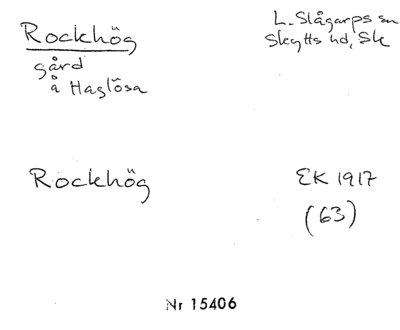 Rockhög
L. Slågarps sn
Skytts hd, Sk
gård
å Haglösa
Rockhög
EK 1917
(63)
Nr 15406